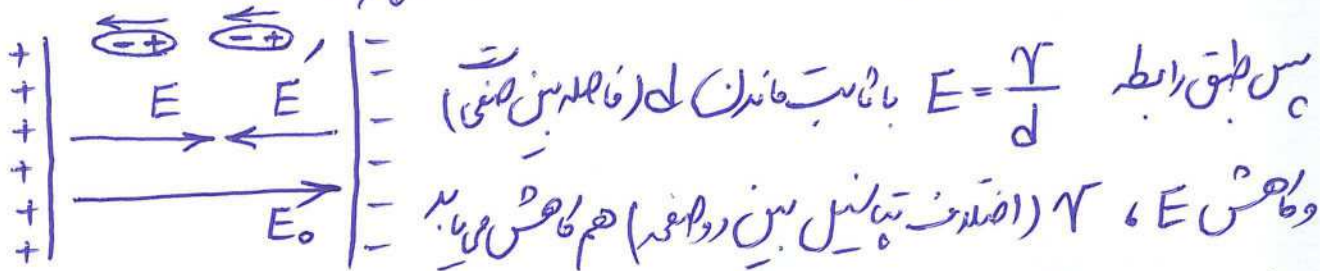 - + - +
+ + + + + + E E′ - - - - - - -
E₀
پس طبق رابطه E = V/d با ثابت ماندن d (فاصله بین صفحات)
و کاهش E ، V (اختلاف پتانسیل بین دو صفحه) هم کاهش می یابد